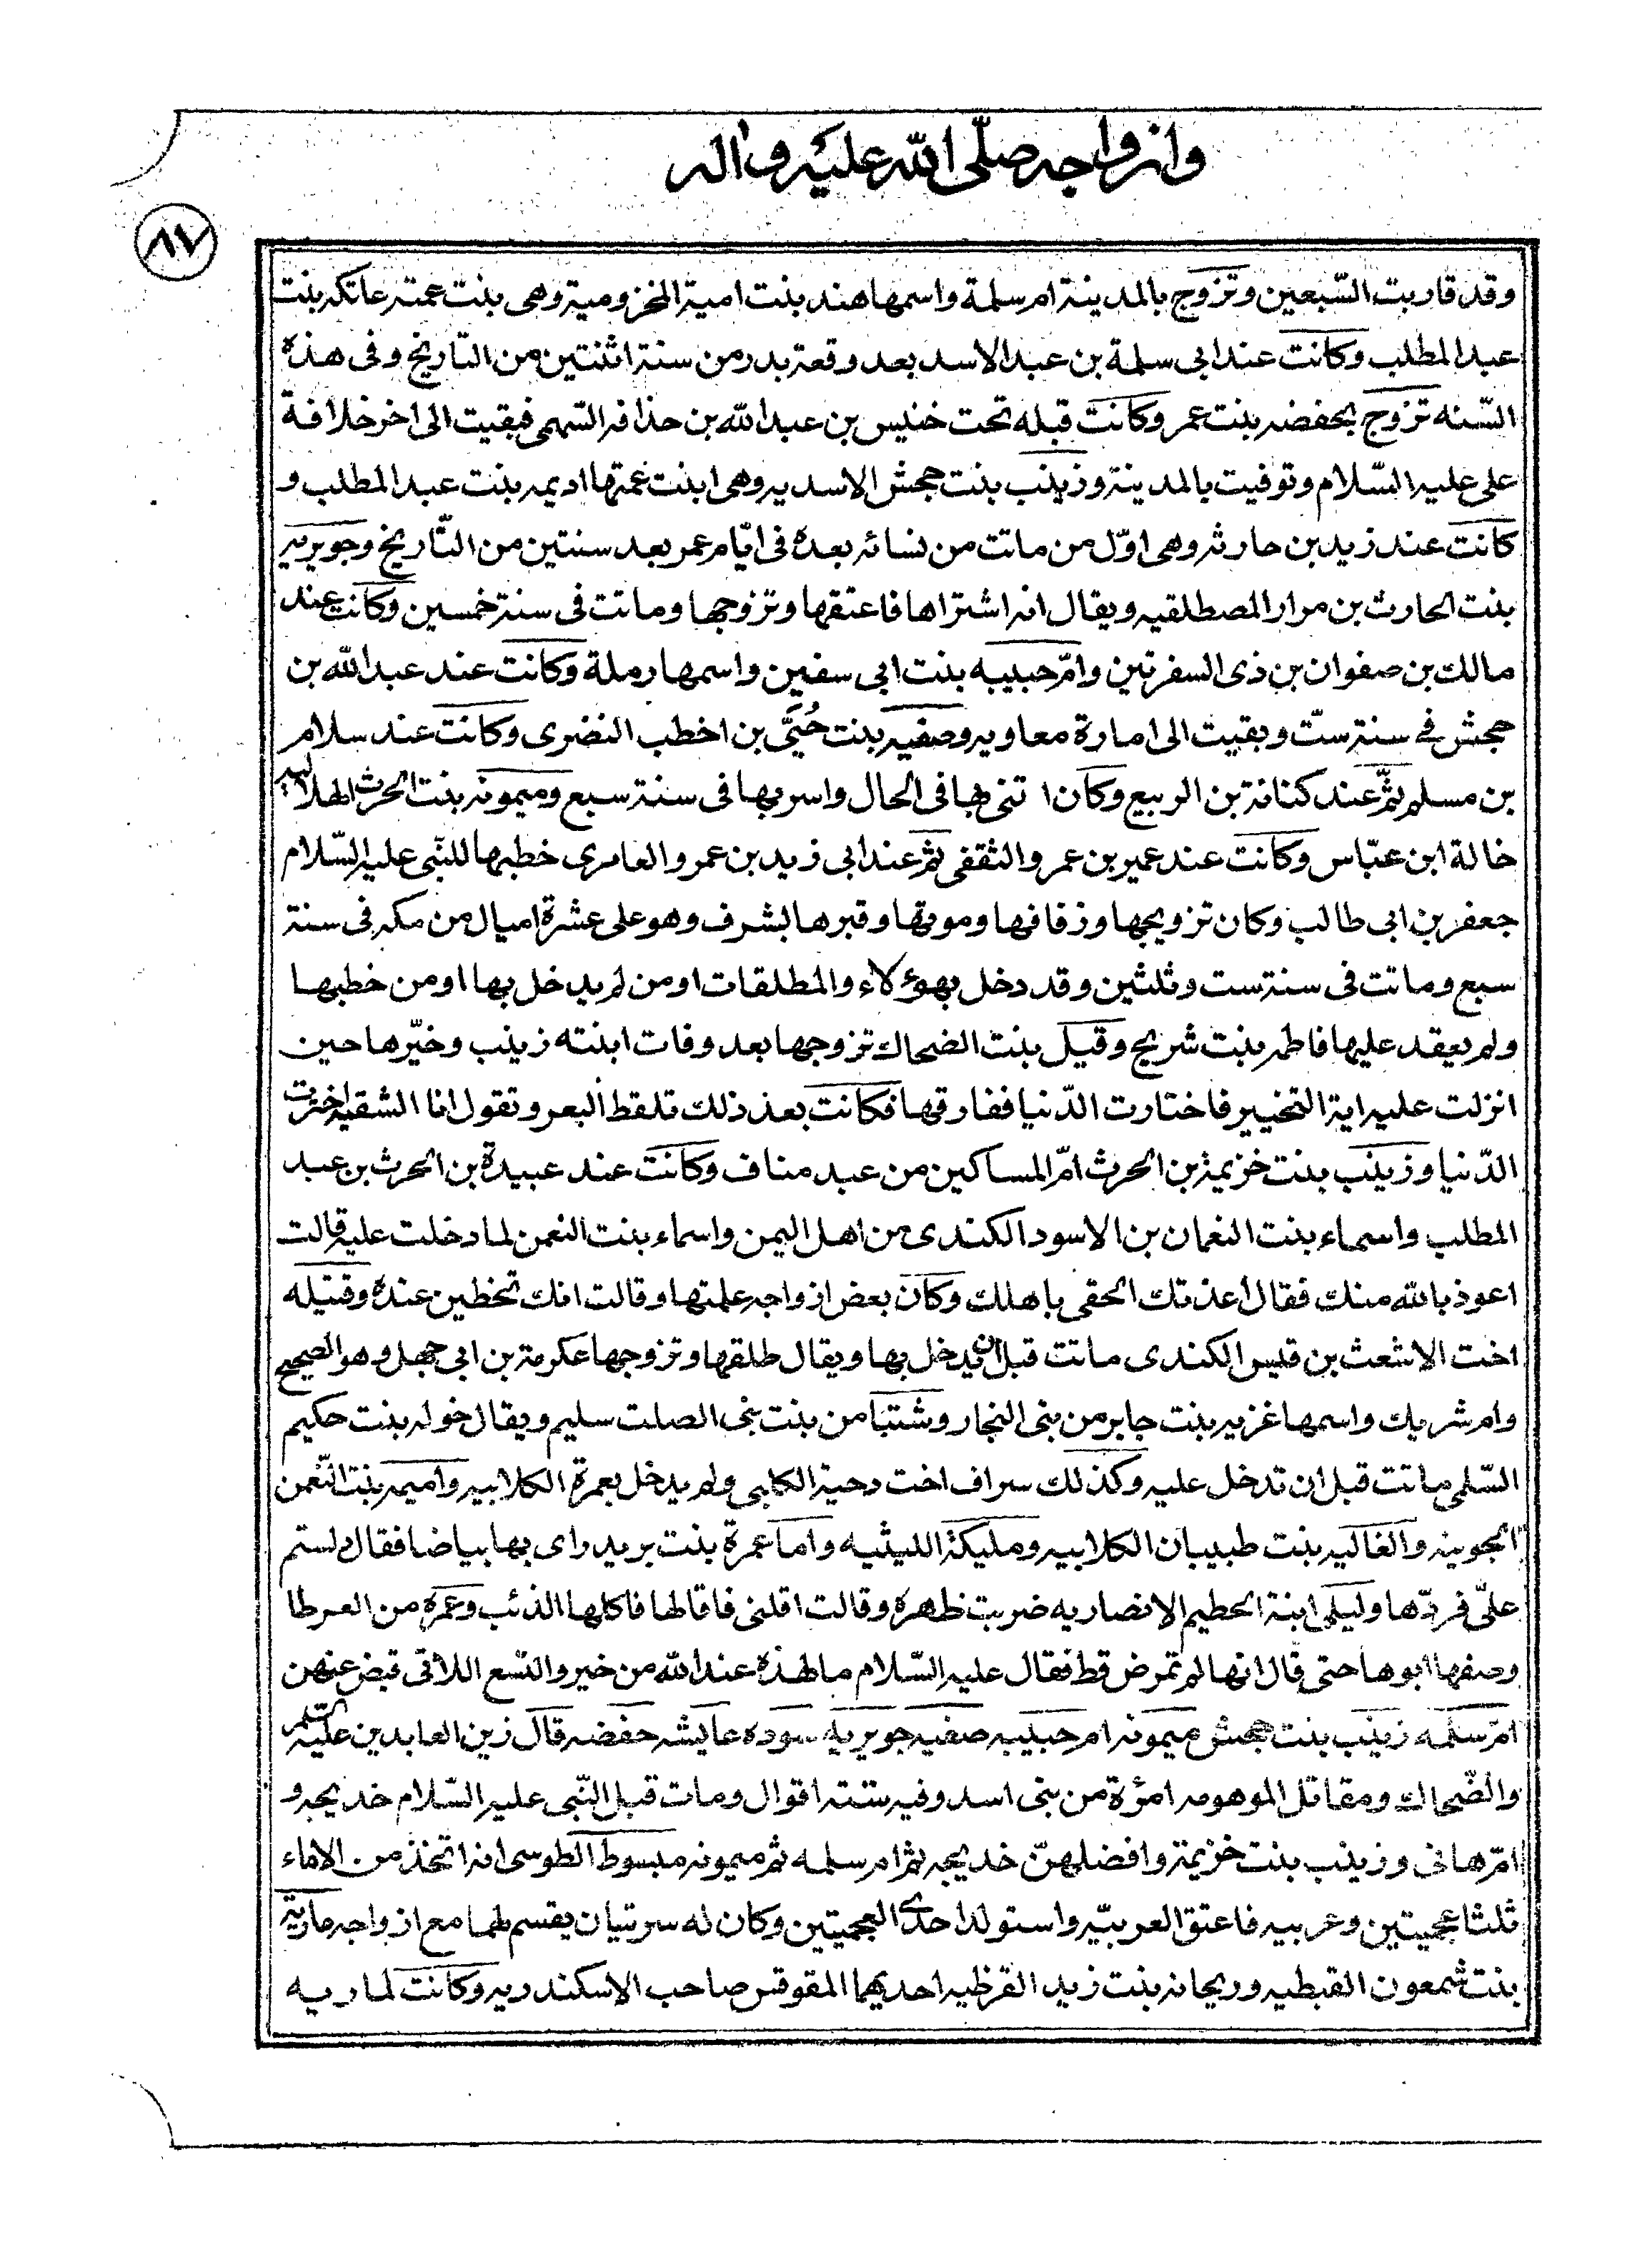 وازواجه صلّى الله عليه واله
٨٧
وقد قاربت السّبعين وتزوج بالمدينة ام سلمة واسمها هند بنت امية المخزومية وهى بنت عمته عاتكه بنت
عبد المطلب وكانت عند ابى سلمة بن عبد الاسد بعد وقعة بدر من سنة اثنتين من التاريخ وفى هذه
السّنه تزوج بحفصه بنت عمر وكانت قبله تحت خنيس بن عبد الله بن حذافه السّهمى فبقيت الى اخر خلافة
على عليه السّلام وتوفيت بالمدينة وزينب بنت جحش الاسديه وهى ابنت عمتها اديمه بنت عبد المطلب و
كانت عند زيد بن حارثه وهى اوّل من ماتت من نسائه بعده فى ايّام عمر بعد سنتين من التّاريخ وجويريه
بنت الحارث بن مرار المصطلقيه ويقال انه اشتراها فاعتقها وتزوجها وماتت فى سنة خمسين وكانت عند
مالك بن صفوان بن ذى السفرتين وامّ حبيبه بنت ابى سفين واسمها رملة وكانت عند عبد الله بن
جحش فى سنة ستّ وبقيت الى امارة معاويه وصفيه بنت حُيَىّ بن اخطب النضرى وكانت عند سلام
بن مسلم ثمّ عند كنانة بن الربيع وكان اتنى بها فى الحال واسر بها فى سنة سبع وميمونه بنت الحرث الهلاليه
خالة ابن عبّاس وكانت عند عمير بن عمرو الثقفى ثم عند ابى زيد بن عمرو العامرى خطبها للنّبى عليه السّلام
جعفر بن ابى طالب وكان تزويجها وزفافها وموتها وقبرها بشرف وهو على عشرة اميال من مكه فى سنة
سبع وماتت فى سنة ست وثلثين وقد دخل بهؤلاء والمطلقات او من لم يدخل بها او من خطبها
ولم يعقد عليها فاطمه بنت شريح وقيل بنت الضحاك تزوجها بعد وفات ابنته زينب وخيّرها حين
انزلت عليه اية التخيير فاختارت الدّنيا ففارقها فكانت بعد ذلك تلقط البعر وتقول انا الشقيه اخترت
الدّنيا وزينب بنت خزيمة بن الحرث امّ المساكين من عبد مناف وكانت عند عبيدة بن الحرث بن عبد
المطلب واسماء بنت النعمان بن الاسود الكندى من اهل اليمن واسماء بنت النعمن لما دخلت عليه قالت
اعوذ بالله منك فقال اعذتك الحقى باهلك وكان بعض ازواجه علمتها وقالت انك تحظين عنده وقتيله
اخت الاشعث بن قيس الكندى ماتت قبل ان يدخل بها ويقال طلقها وتزوجها عكرمة بن ابى جهل وهو الصحيح
وام شريك واسمها غزيه بنت جابر من بنى النجار وشنبا من بنت بنى الصلت سليم ويقال خوله بنت حكيم
السّلمى ماتت قبل ان تدخل عليه وكذلك سراف اخت دحية الكلبى ولم يدخل بعمرة الكلابيه واميمه بنت النّعمن
الجوينة والغاليه بنت طبيبان الكلابيه ومليكة الليثيه واما عمرة بنت بريد راى بها بياضا فقال دلستم
علىّ فردّها وليلى ابنة الحطيم الانصاريه ضربت ظهره وقالت اقلنى فاقالها فاكلها الذئب وعمره من العرطا
وصفها ابوها حتى قال انها لم تمرض قط فقال عليه السّلام ما لهذه عند الله من خير والتسع اللاتى قبض عنهن
امّ سلمه زينب بنت جحش ميمونه ام حبيبه صفيه جويريه سوده عايشه حفصه قال زين العابدين عليه السّلم
والضّحاك ومقاتل الموهومه امرؤة من بنى اسد وفيه ستة اقوال ومات قبل النّبى عليه السّلام خديجه و
امّ هانى وزينب بنت خزيمة وافضلهنّ خديجه ثم ام سلمه ثم ميمونه مبسوط الطوسى انه اتخذ من الاماء
ثلثا عجميتين وعربيه فاعتق العربيّه واستولد احدى العجميتين وكان له سريتان يقسم لهما مع ازواجه مارية
بنت شمعون القبطيه وريحانه بنت زيد القرظيه احديهما المقوقس صاحب الاسكندريه وكانت لماريه